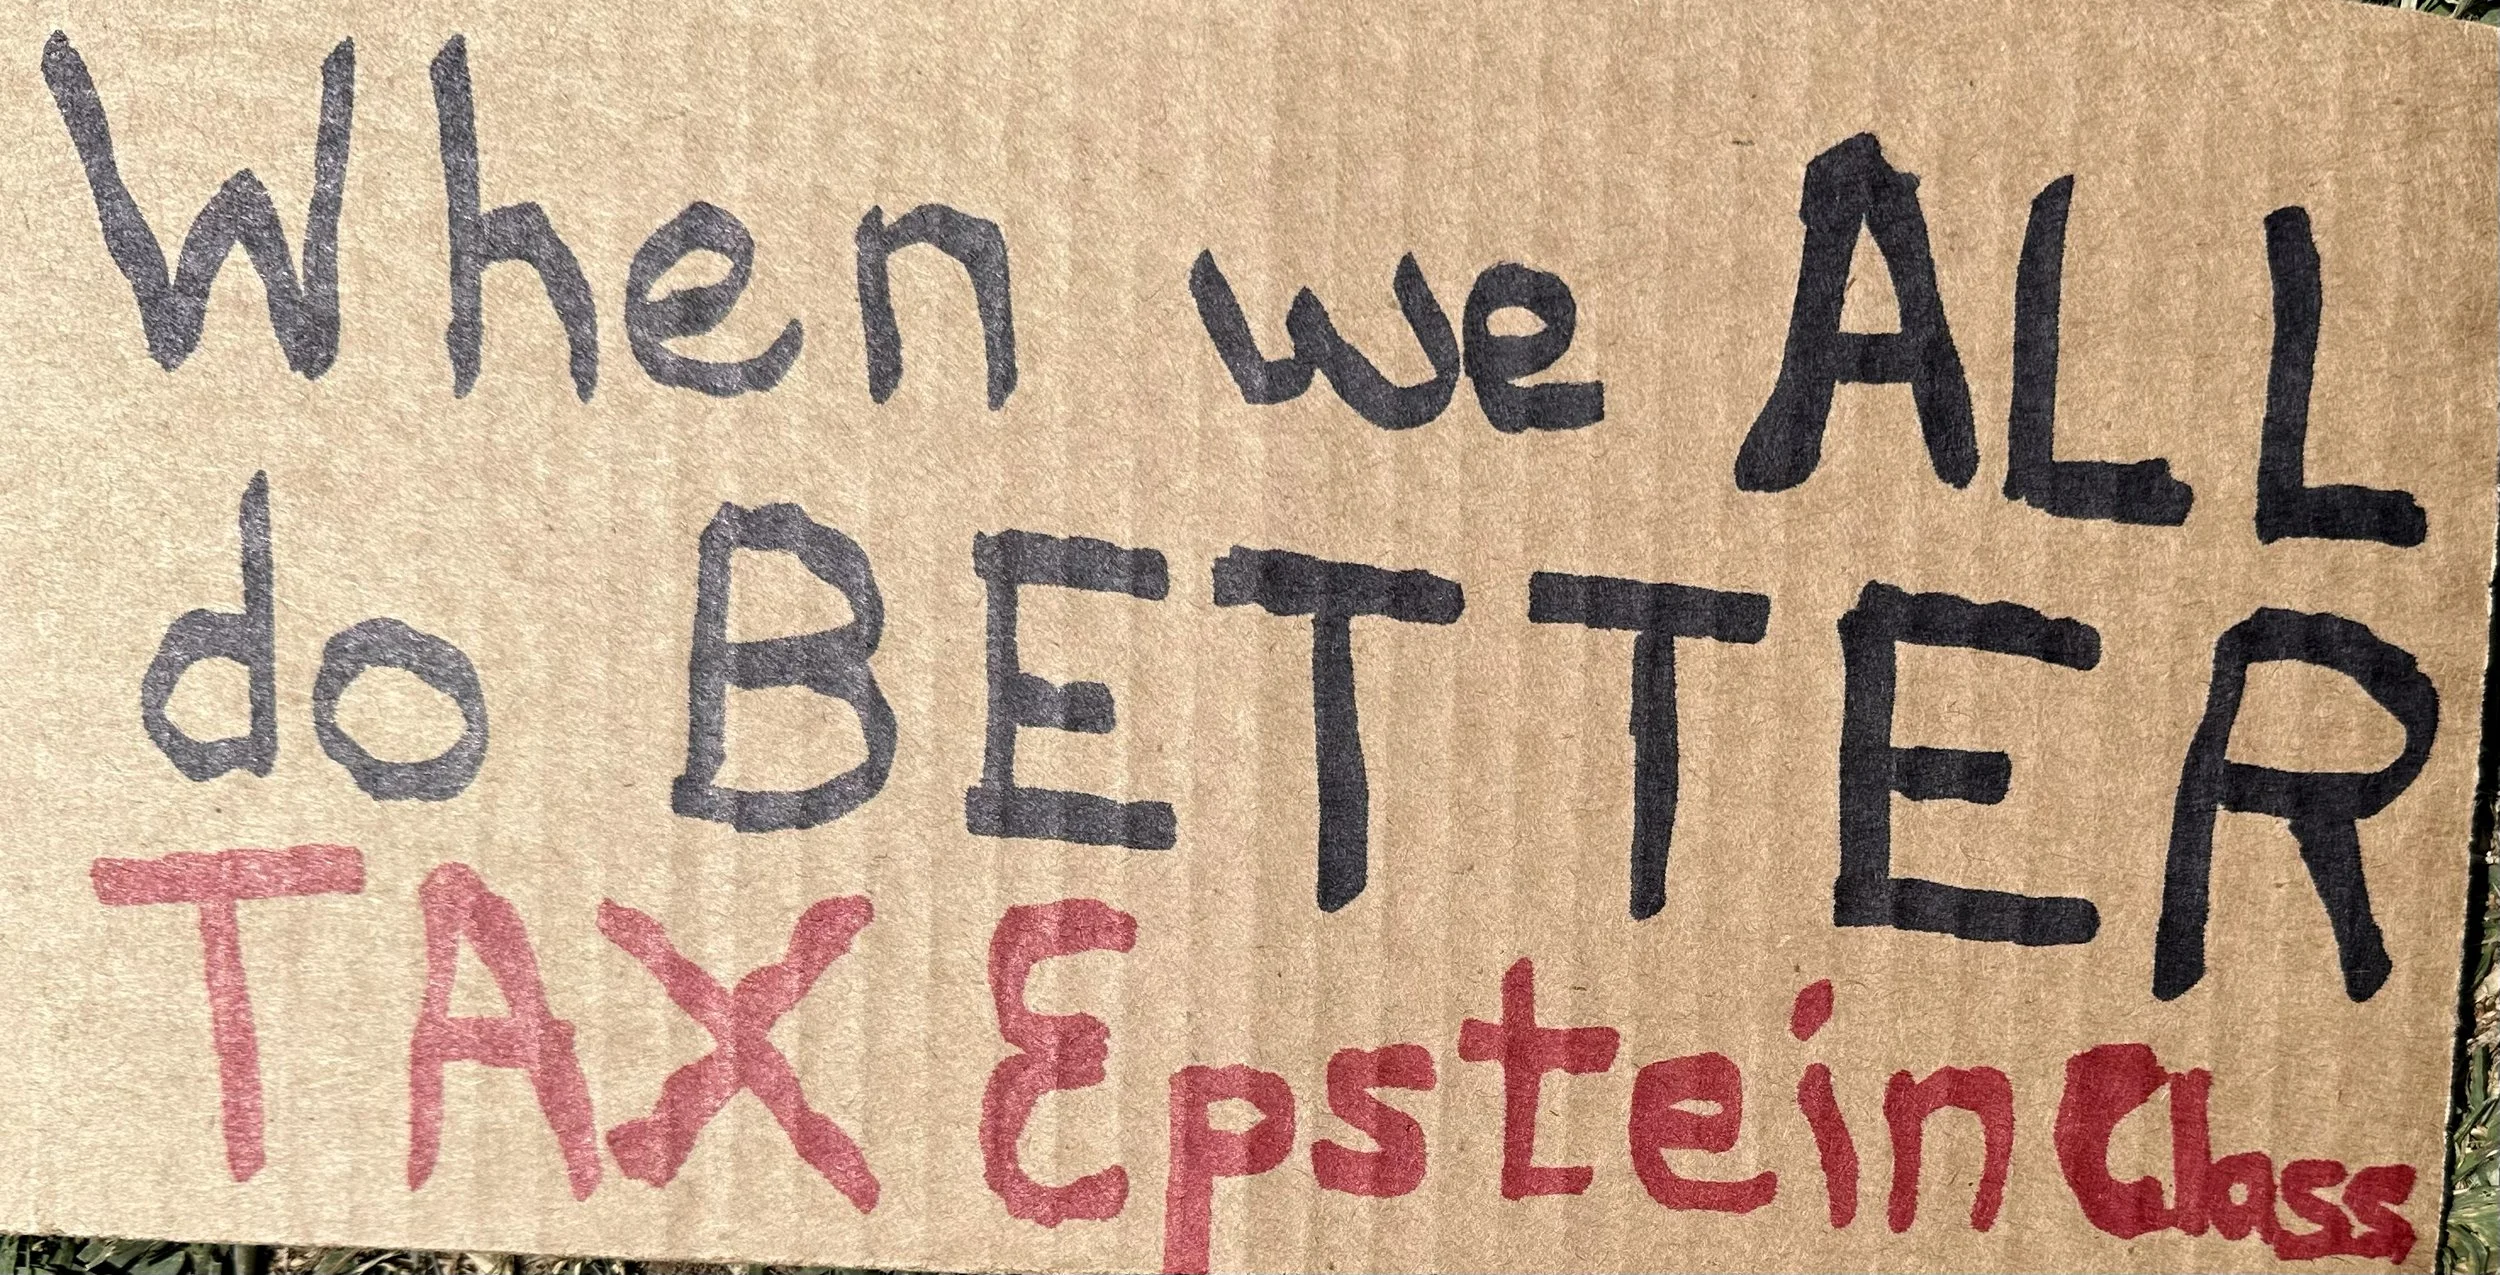 When we ALL
do BETTER
TAX Epstein Class